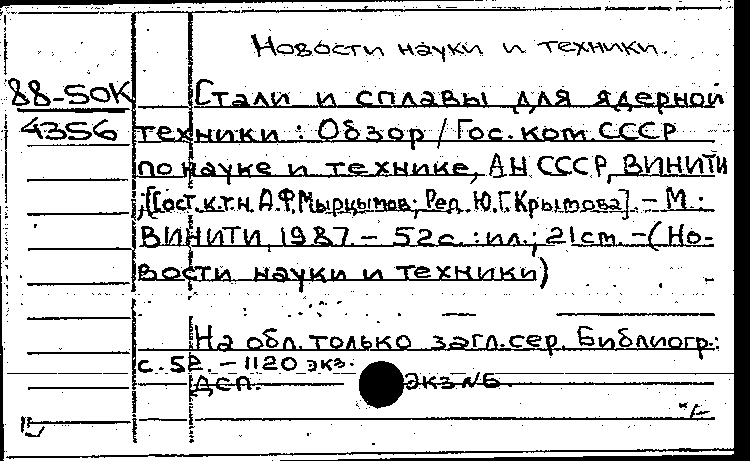 Новости науки и техники.
88-50К
4356
Стали и сплавы для ядерной
техники : Обзор / Гос. ком. СССР
по науке и технике, АН СССР, ВИНИТИ
; [Сост. к.т.н. А.Ф. Мырцымов; Ред. Ю.Г. Крымова]. – М. :
ВИНИТИ, 1987. – 52с. : ил.; 21 см. – (Но-
вости науки и техники)
На обл. только загл. сер. Библиогр.:
с. 52. – 1120 экз.
ДСП. экз №Б.